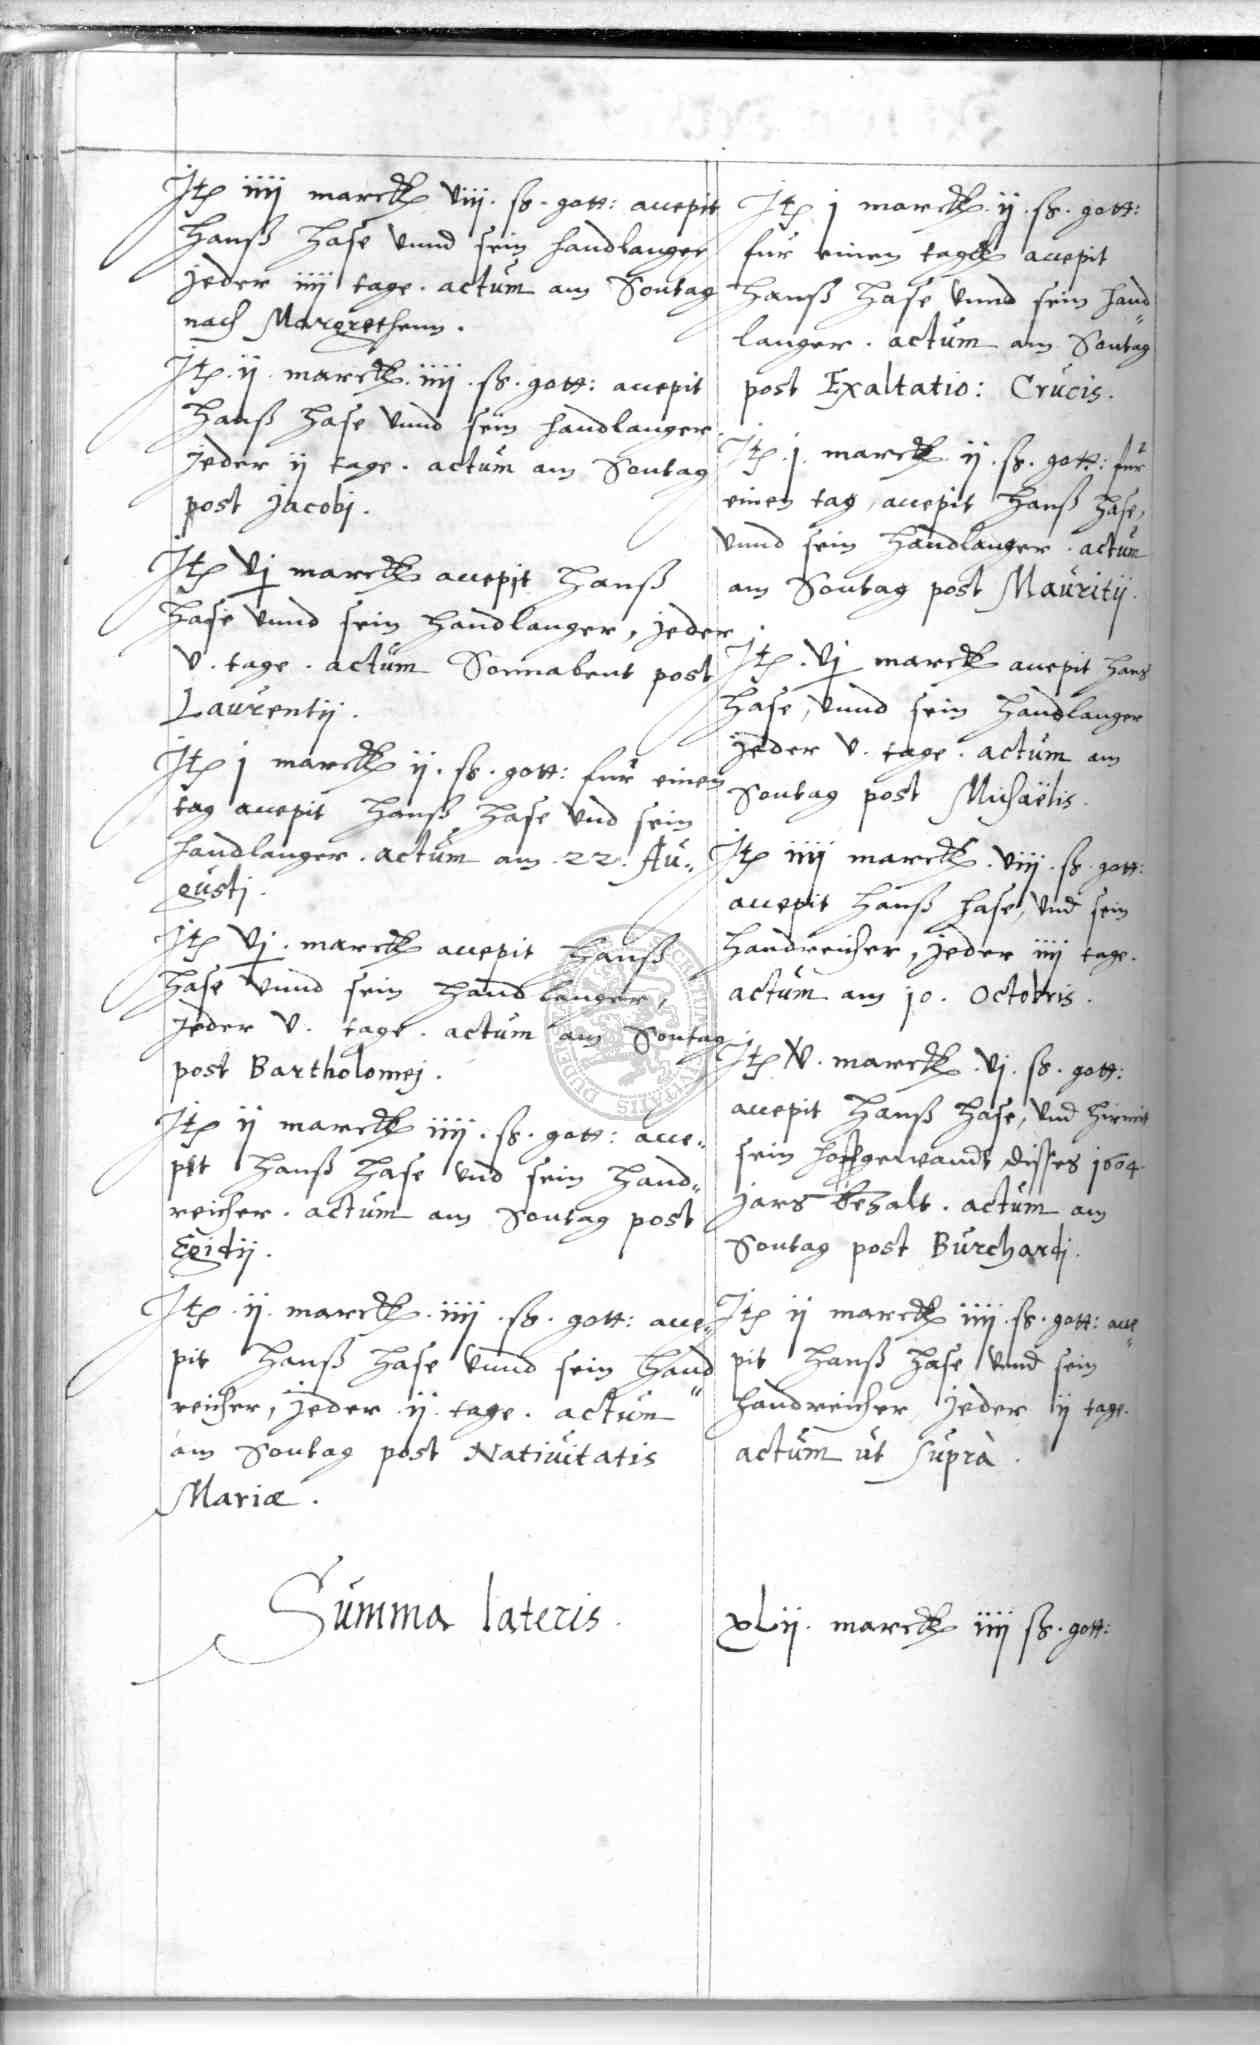 Itẽ iiij marck viij. ß. gott: accepit
Hanß Hase vnnd sein handlanger
jeder iiij tage. actum am Sontag
nach Margrethenn.
Itẽ. ij. marck. iiij. ß. gott: accepit
Hanß Hase vnnd sein handlanger
Jeder ij tage. actum am Sontag
post Jacobj.
Itẽ vj marck accepit Hanß
Hase vnnd sein Handlanger, jeder
v. tage. actum Sonnabent post
Laurentij.
Itẽ j marck ij. ß. gott: fur einen
tag accepit Hanß Hase vnd sein
handlanger. actum am .22. Au„
gustj.
Itẽ vj. marck accepit Hanß
Hase vnnd sein Handlanger,
Jeder v. tage. actum am Sontag
post Bartholomej.
Itẽ ij marck iiij. ß. gott: acce„
pit Hanß Hase vnd sein Hand„
reicher. actum am Sontag post
Egidij.
Itẽ .ij. marck. iiij. ß. gott: acce„
pit Hanß Hase vnnd sein Hand„
reicher, jeder ij. tage. actum
am Sontag post Natiuitatis
Mariæ.
Itẽ j marck. ij. ß. gott:
fur einen tagk accepit
Hanß Hase vnnd sein Hand„
langer. actum am Sontag
post Exaltatio: Crucis.
Itẽ. j. marck ij. ß. gott: fur
einen tag, accepit Hanß Hase,
vnnd sein Handlanger. actum
am Sontag post Mauritij.
Itẽ. vj marck accepit Hans
Hase, vnnd sein Handlanger
jeder v. tage. actum am
Sontag post Michaëlis.
Itẽ iiij marck. viij. ß. gott:
accepit Hanß Hase, vnd sein
Handreicher, jeder iiij tage.
actum am 10. Octobris.
Itẽ v. marck. vj. ß. gott:
accepit Hanß Hase, vnd hirmit
sein hoffgewandt disses 1604.
Jars bezalt. actum am
Sontag post Burchardj.
Itẽ ij marck iiij. ß. gott: acce„
pit Hanß Hase vnnd sein
Handreicher jeder ij tage.
actum ut suprà.
Summa lateris.
xLij. marck iiij ß. gott: